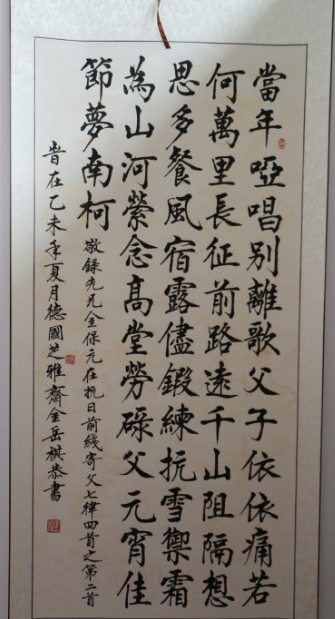 當年啞唱別離歌父子依依痛若
何萬里長征前路遠千山阻隔想
思多餐風宿露儘鍛練抗雪禦霜
為山河縈念高堂勞碌父元宵佳
節夢南柯
敬錄先兄金保元在抗日前綫寄父七律四首之第二首
旹在乙未年夏月德國芝雅齋金岳祺恭書